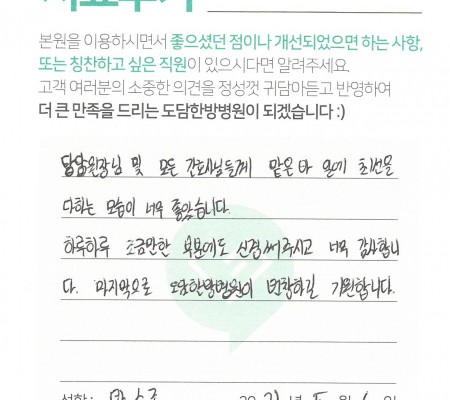 본원을 이용하시면서 좋으셨던 점이나 개선되었으면 하는 사항,
또는 칭찬하고 싶은 직원이 있으시다면 알려주세요.
고객 여러분의 소중한 의견을 정성껏 귀담아듣고 반영하여
더 큰 만족을 드리는 도담한방병원이 되겠습니다 :)
담당원장님 및 모든 간호사님들께 맡은 바 일에 최선을
다하는 모습이 너무 좋았습니다.
하루하루 조금만한 부분에도 신경써주시고 너무 감사합니
다. 마지막으로 도담한방병원이 번창하길 기원합니다.
성함 :
20 21 년 5 월